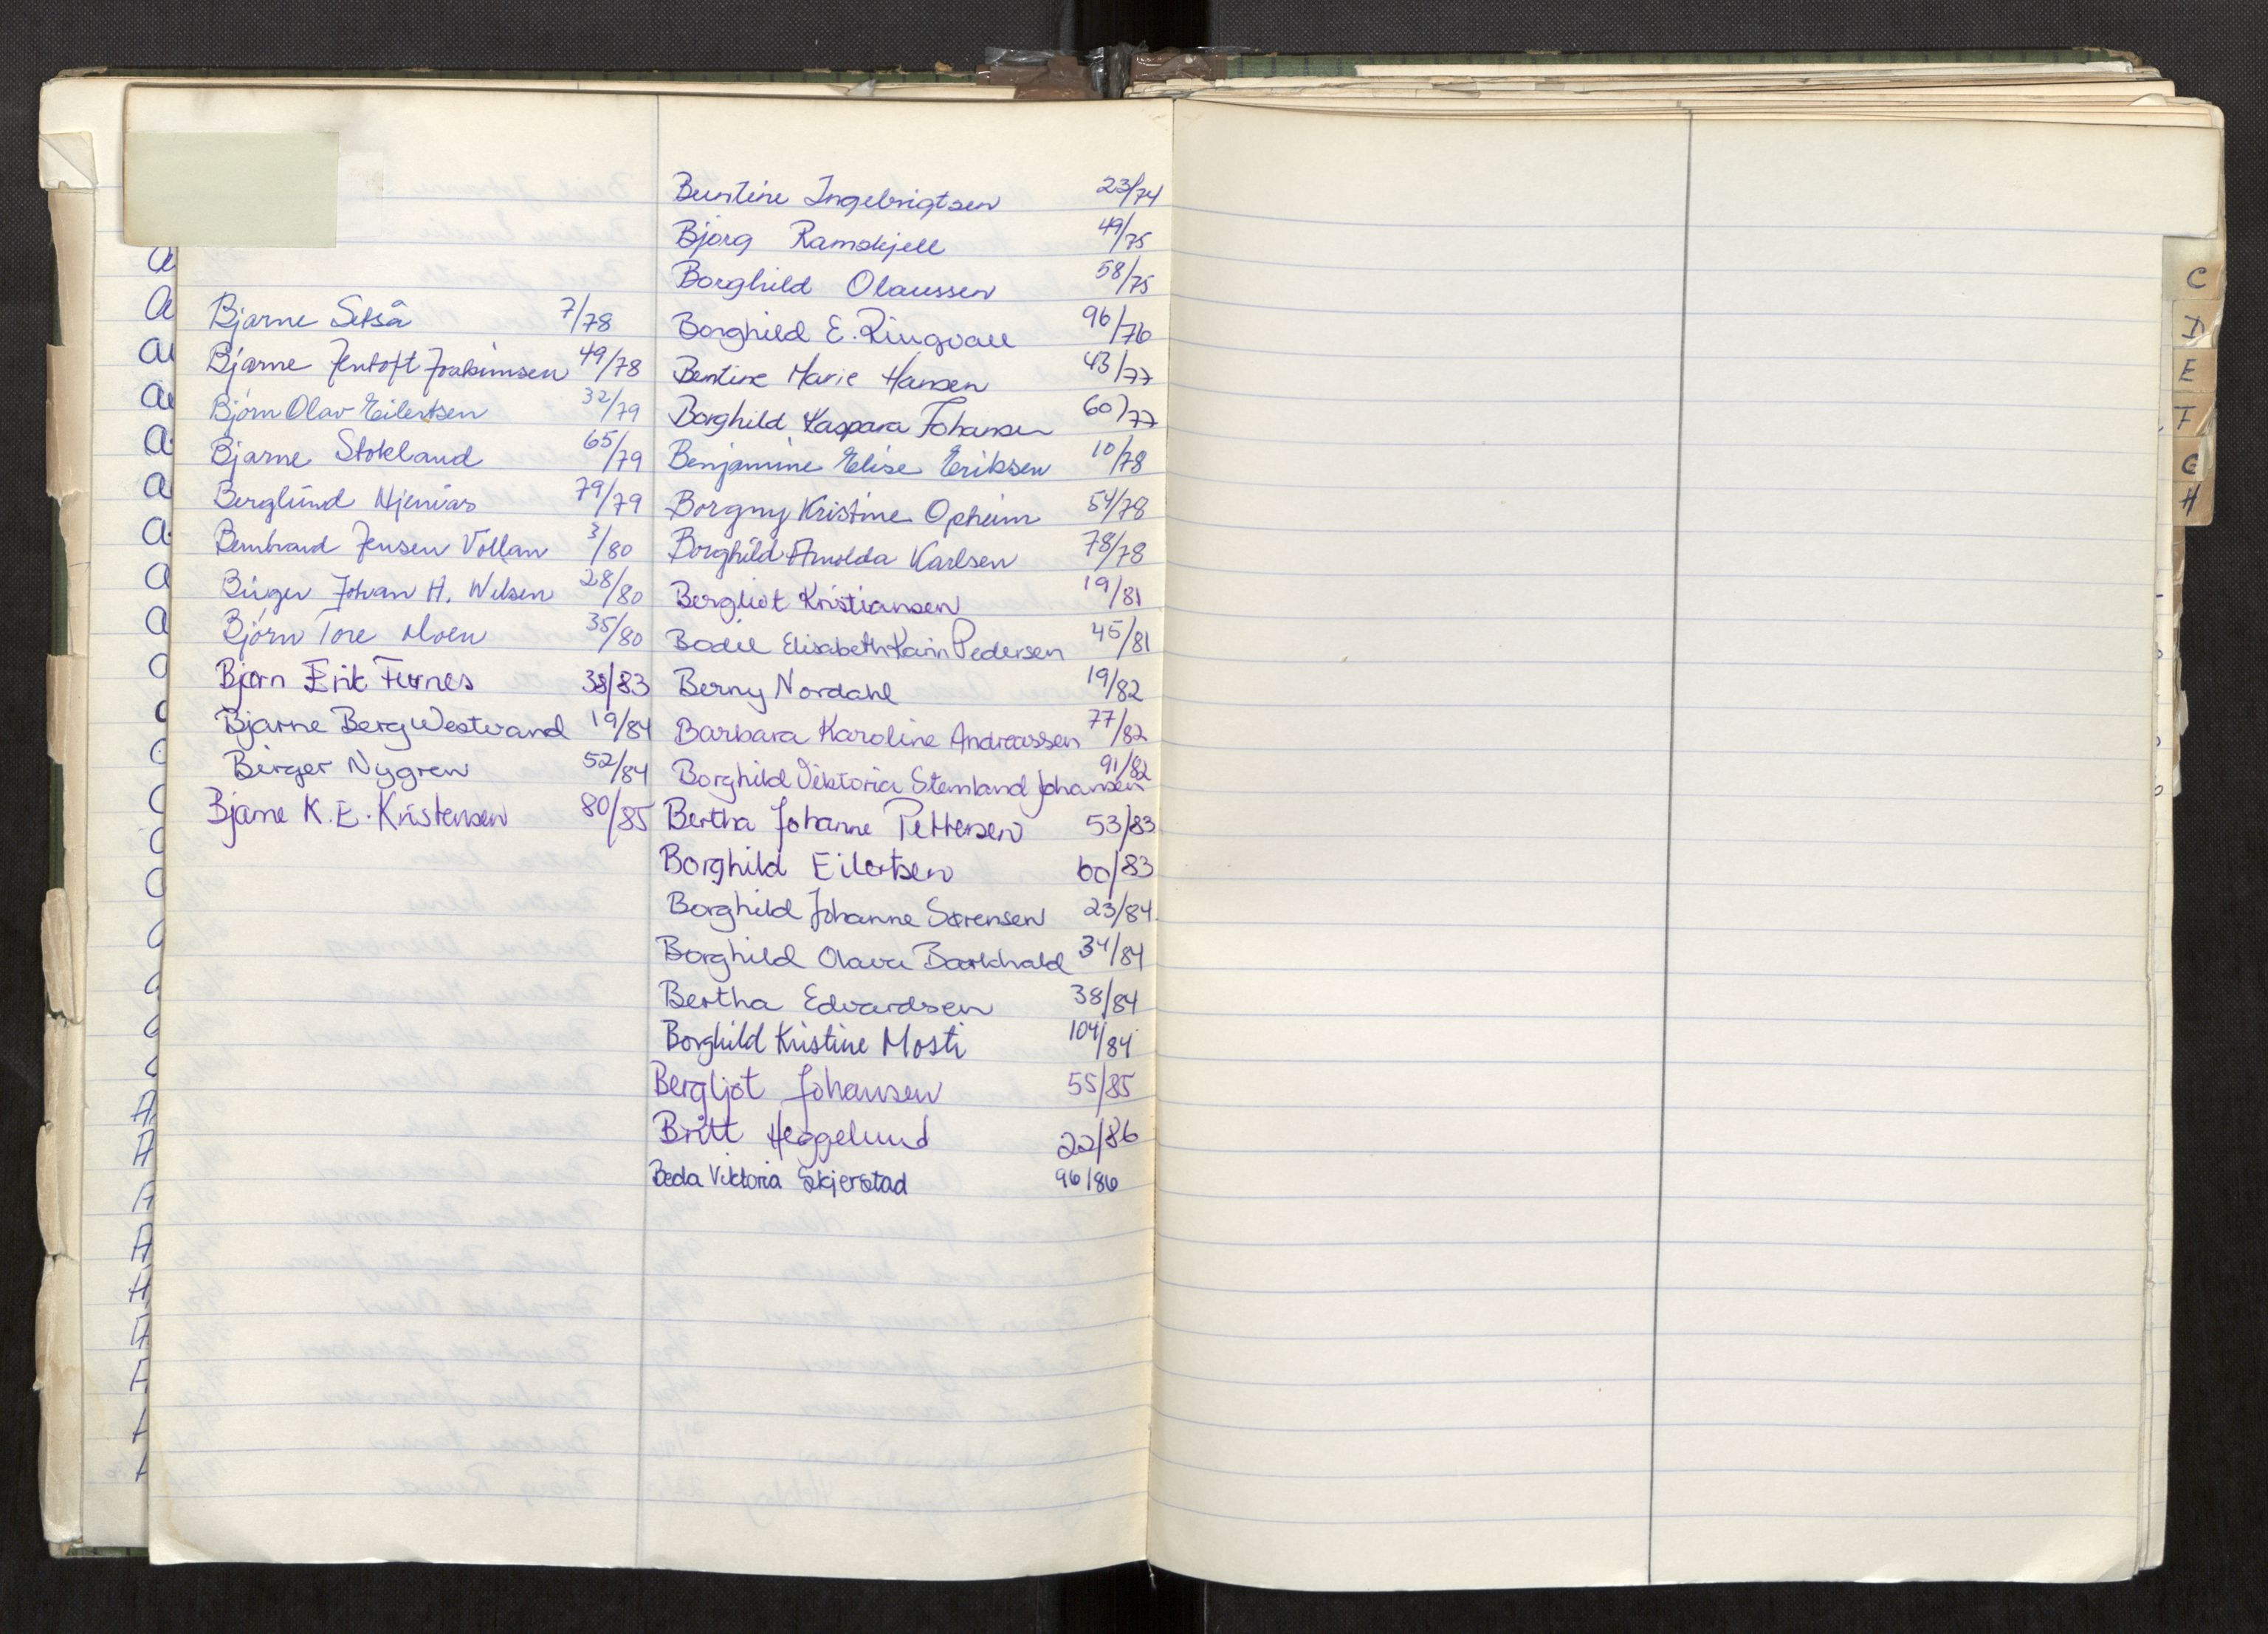 Bjarne Setså 7/78
Bjarne Jentoft Joakimsen 49/78
Bjørn Olav Eilertsen 32/79
Bjarne Stokland 65/79
Berglund Njervas 79/79
Bernhard Jensen Vollan 3/80
Birger Johan H. Nilsen 28/80
Bjørn Tore Moen 35/80
Bjørn Erik Furnes 38/83
Bjarne Berg Westvand 19/84
Birger Nygren 52/84
Bjarne K.E. Kristensen 80/85
Berntine Ingebrigtsen 23/74
Bjørg Ramskjell 49/75
Borghild Olaussen 58/75
Borghild E. Ringvall 96/76
Bentine Marie Hansen 43/77
Borghild Kaspara Johansen 60/77
Benjamine Elise Eriksen 10/78
Borgny Kristine Opheim 54/78
Borghild Arnolda Karlsen 78/78
Bergliot Kristiansen 19/81
Bodil Elisabeth Karin Pedersen 45/81
Berny Nordahl 19/82
Barbara Karoline Andreassen 77/82
Borghild Viktoria Stemland Johansen 91/82
Bertha Johanne Pettersen 53/83
Borghild Eilertsen 60/83
Borghild Johanne Sørensen 23/84
Borghild Olava Barkhald 34/84
Bertha Edvardsen 38/84
Borghild Kristine Mosti 104/84
Bergljot Johansen 55/85
Britt Heggelund 22/86
Beda Viktoria Skjerstad 96/86
C
D
E
F
G
H